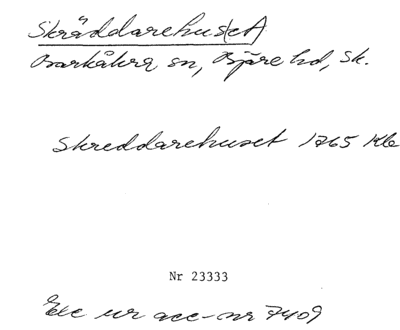 Skräddarehuset
Barkåkra sn, Bjäre hd, Sk.
Skreddarehuset 1765 Kle
Nr 23333
Exc ur acc-nr 7409